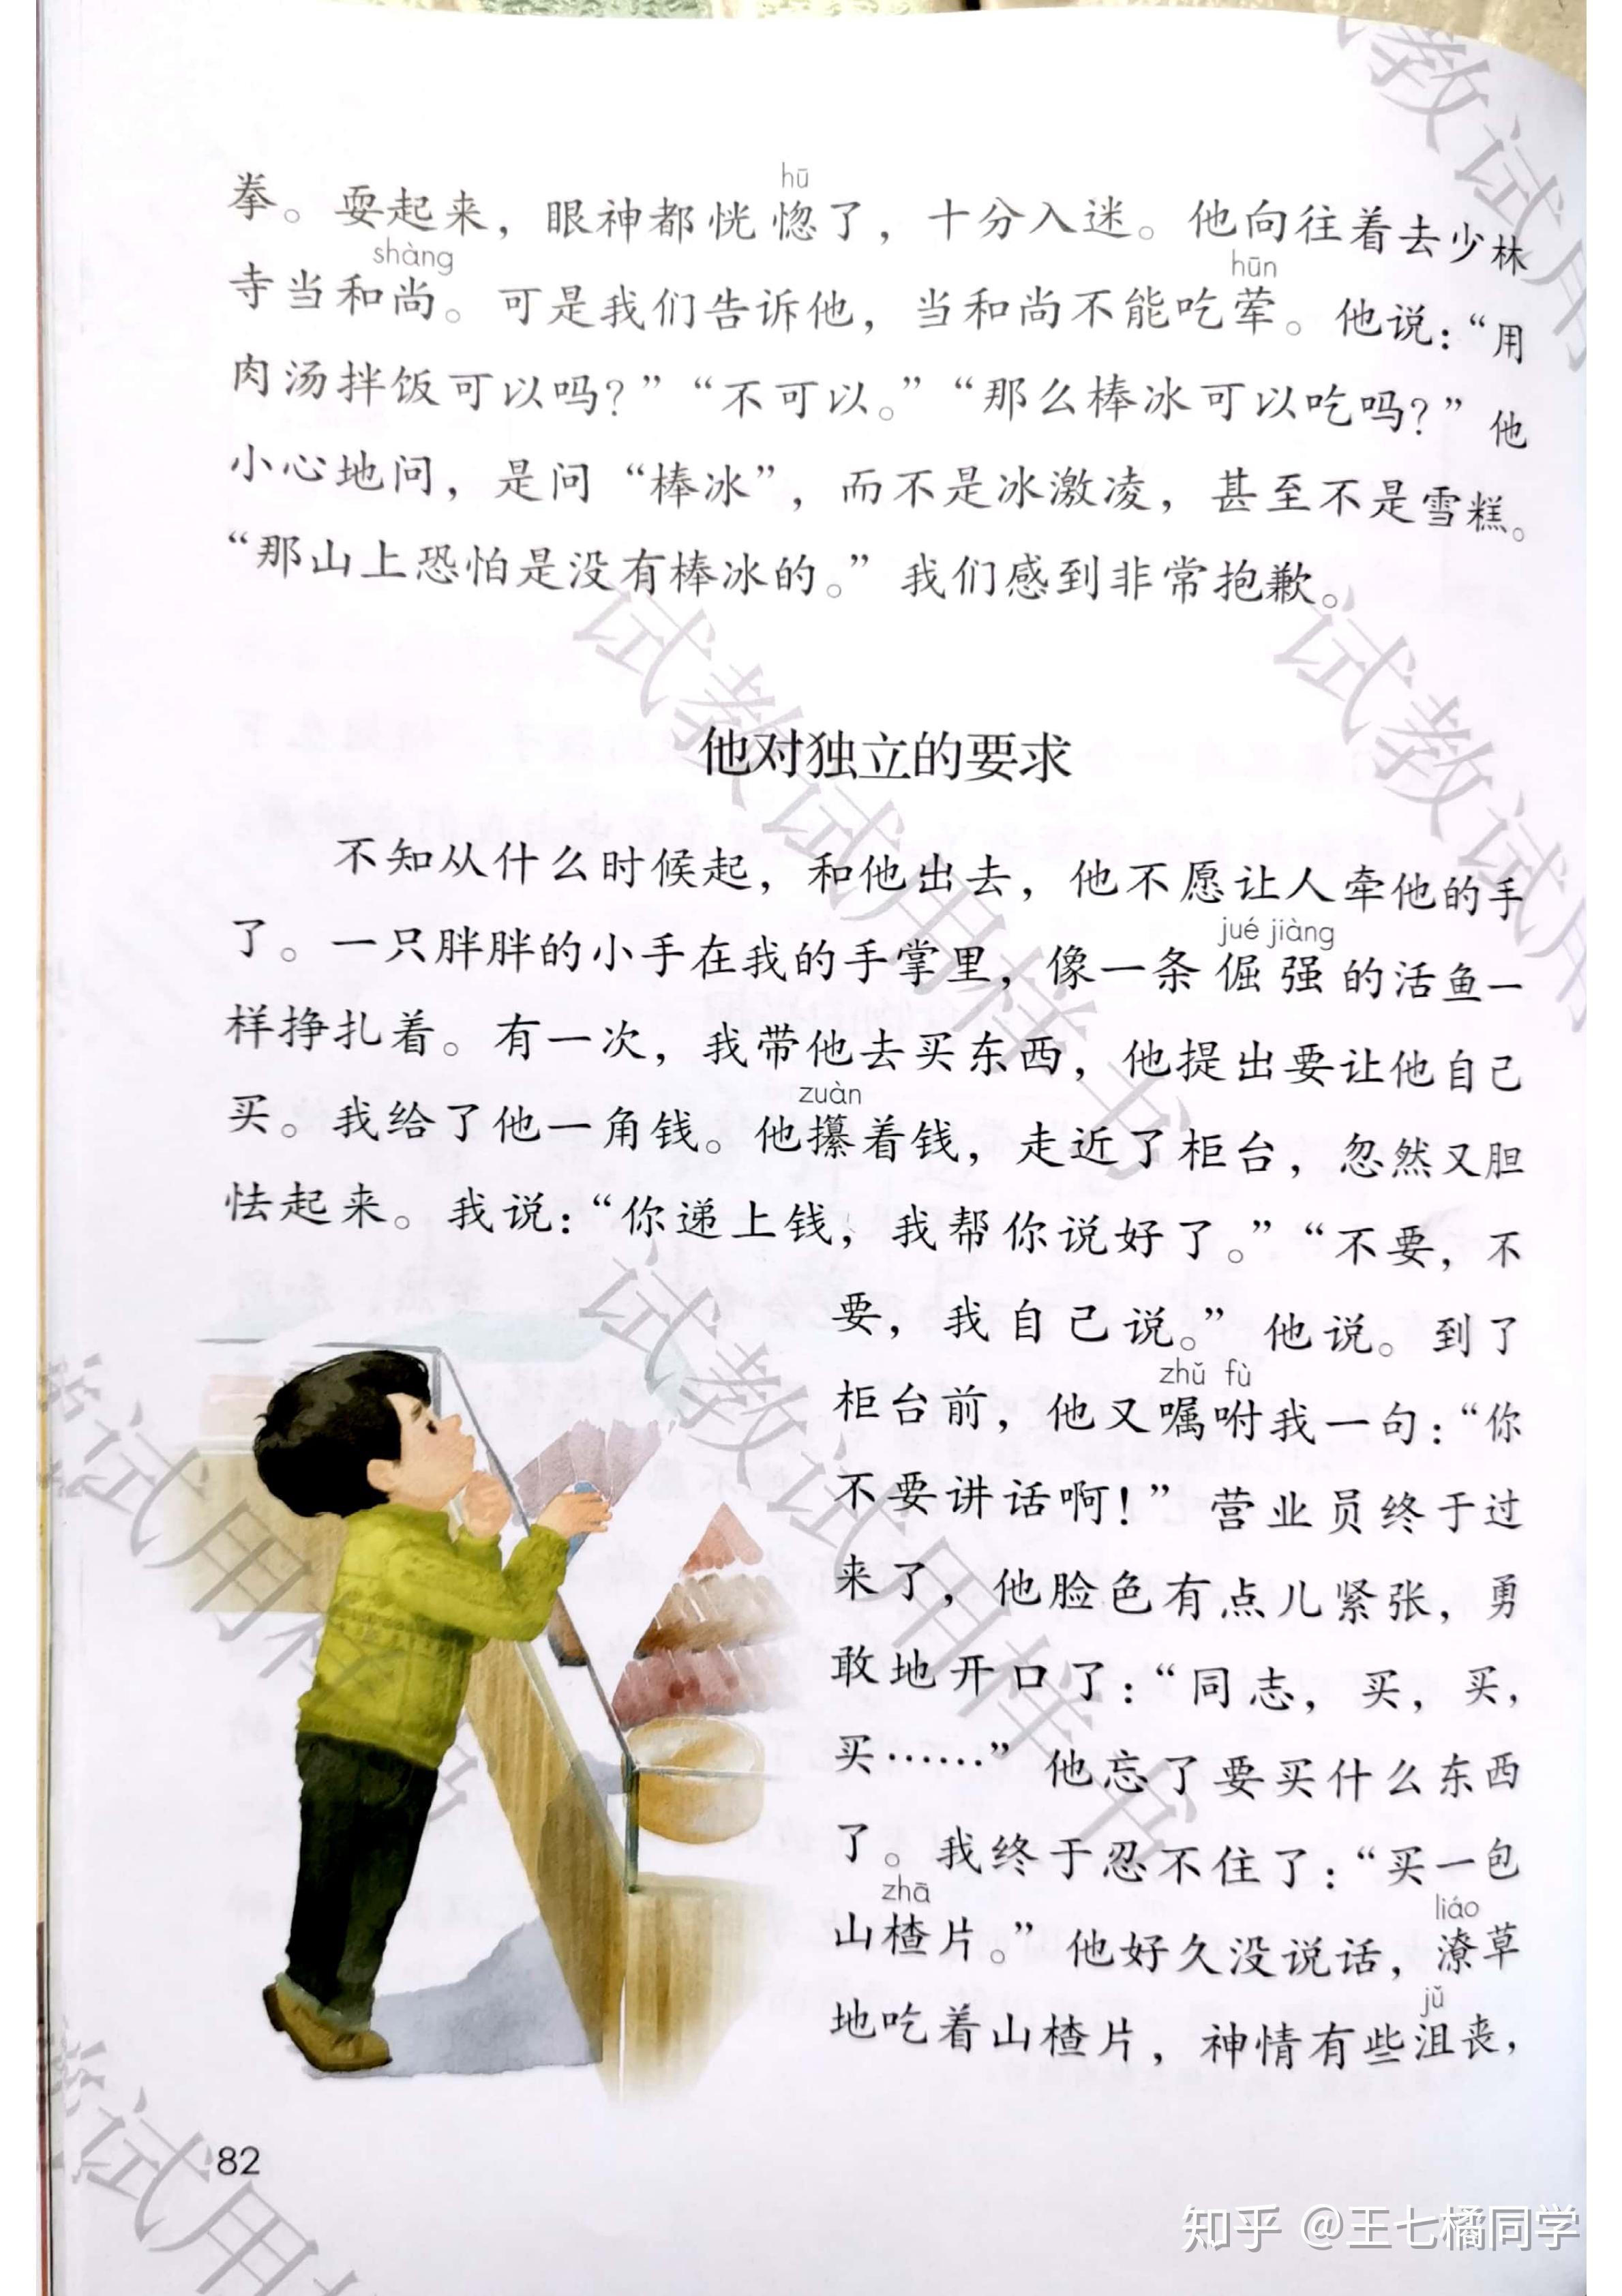 hū
拳。耍起来，眼神都恍惚了，十分入迷。他向往着去少林
shàng hūn
寺当和尚。可是我们告诉他，当和尚不能吃荤。他说：“用
肉汤拌饭可以吗？”“不可以。”“那么棒冰可以吃吗？”他
小心地问，是问“棒冰”，而不是冰激凌，甚至不是雪糕。
“那山上恐怕是没有棒冰的。”我们感到非常抱歉。
他对独立的要求
不知从什么时候起，和他出去，他不愿让人牵他的手
jué jiàng
了。一只胖胖的小手在我的手掌里，像一条倔强的活鱼一
样挣扎着。有一次，我带他去买东西，他提出要让他自己
zuàn
买。我给了他一角钱。他攥着钱，走近了柜台，忽然又胆
怯起来。我说：“你递上钱，我帮你说好了。”“不要，不
要，我自己说。”他说。到了
zhǔ fù
柜台前，他又嘱咐我一句：“你
不要讲话啊！”营业员终于过
来了，他脸色有点儿紧张，勇
敢地开口了：“同志，买，买，
买……”他忘了要买什么东西
了。我终于忍不住了：“买一包
zhā liáo
山楂片。”他好久没说话，潦草
jǔ
地吃着山楂片，神情有些沮丧，
82
试教试用样书
试教试用样书
试教试用
教试用
试教试用样书
试用样书
试用样
知乎 @王七橘同学